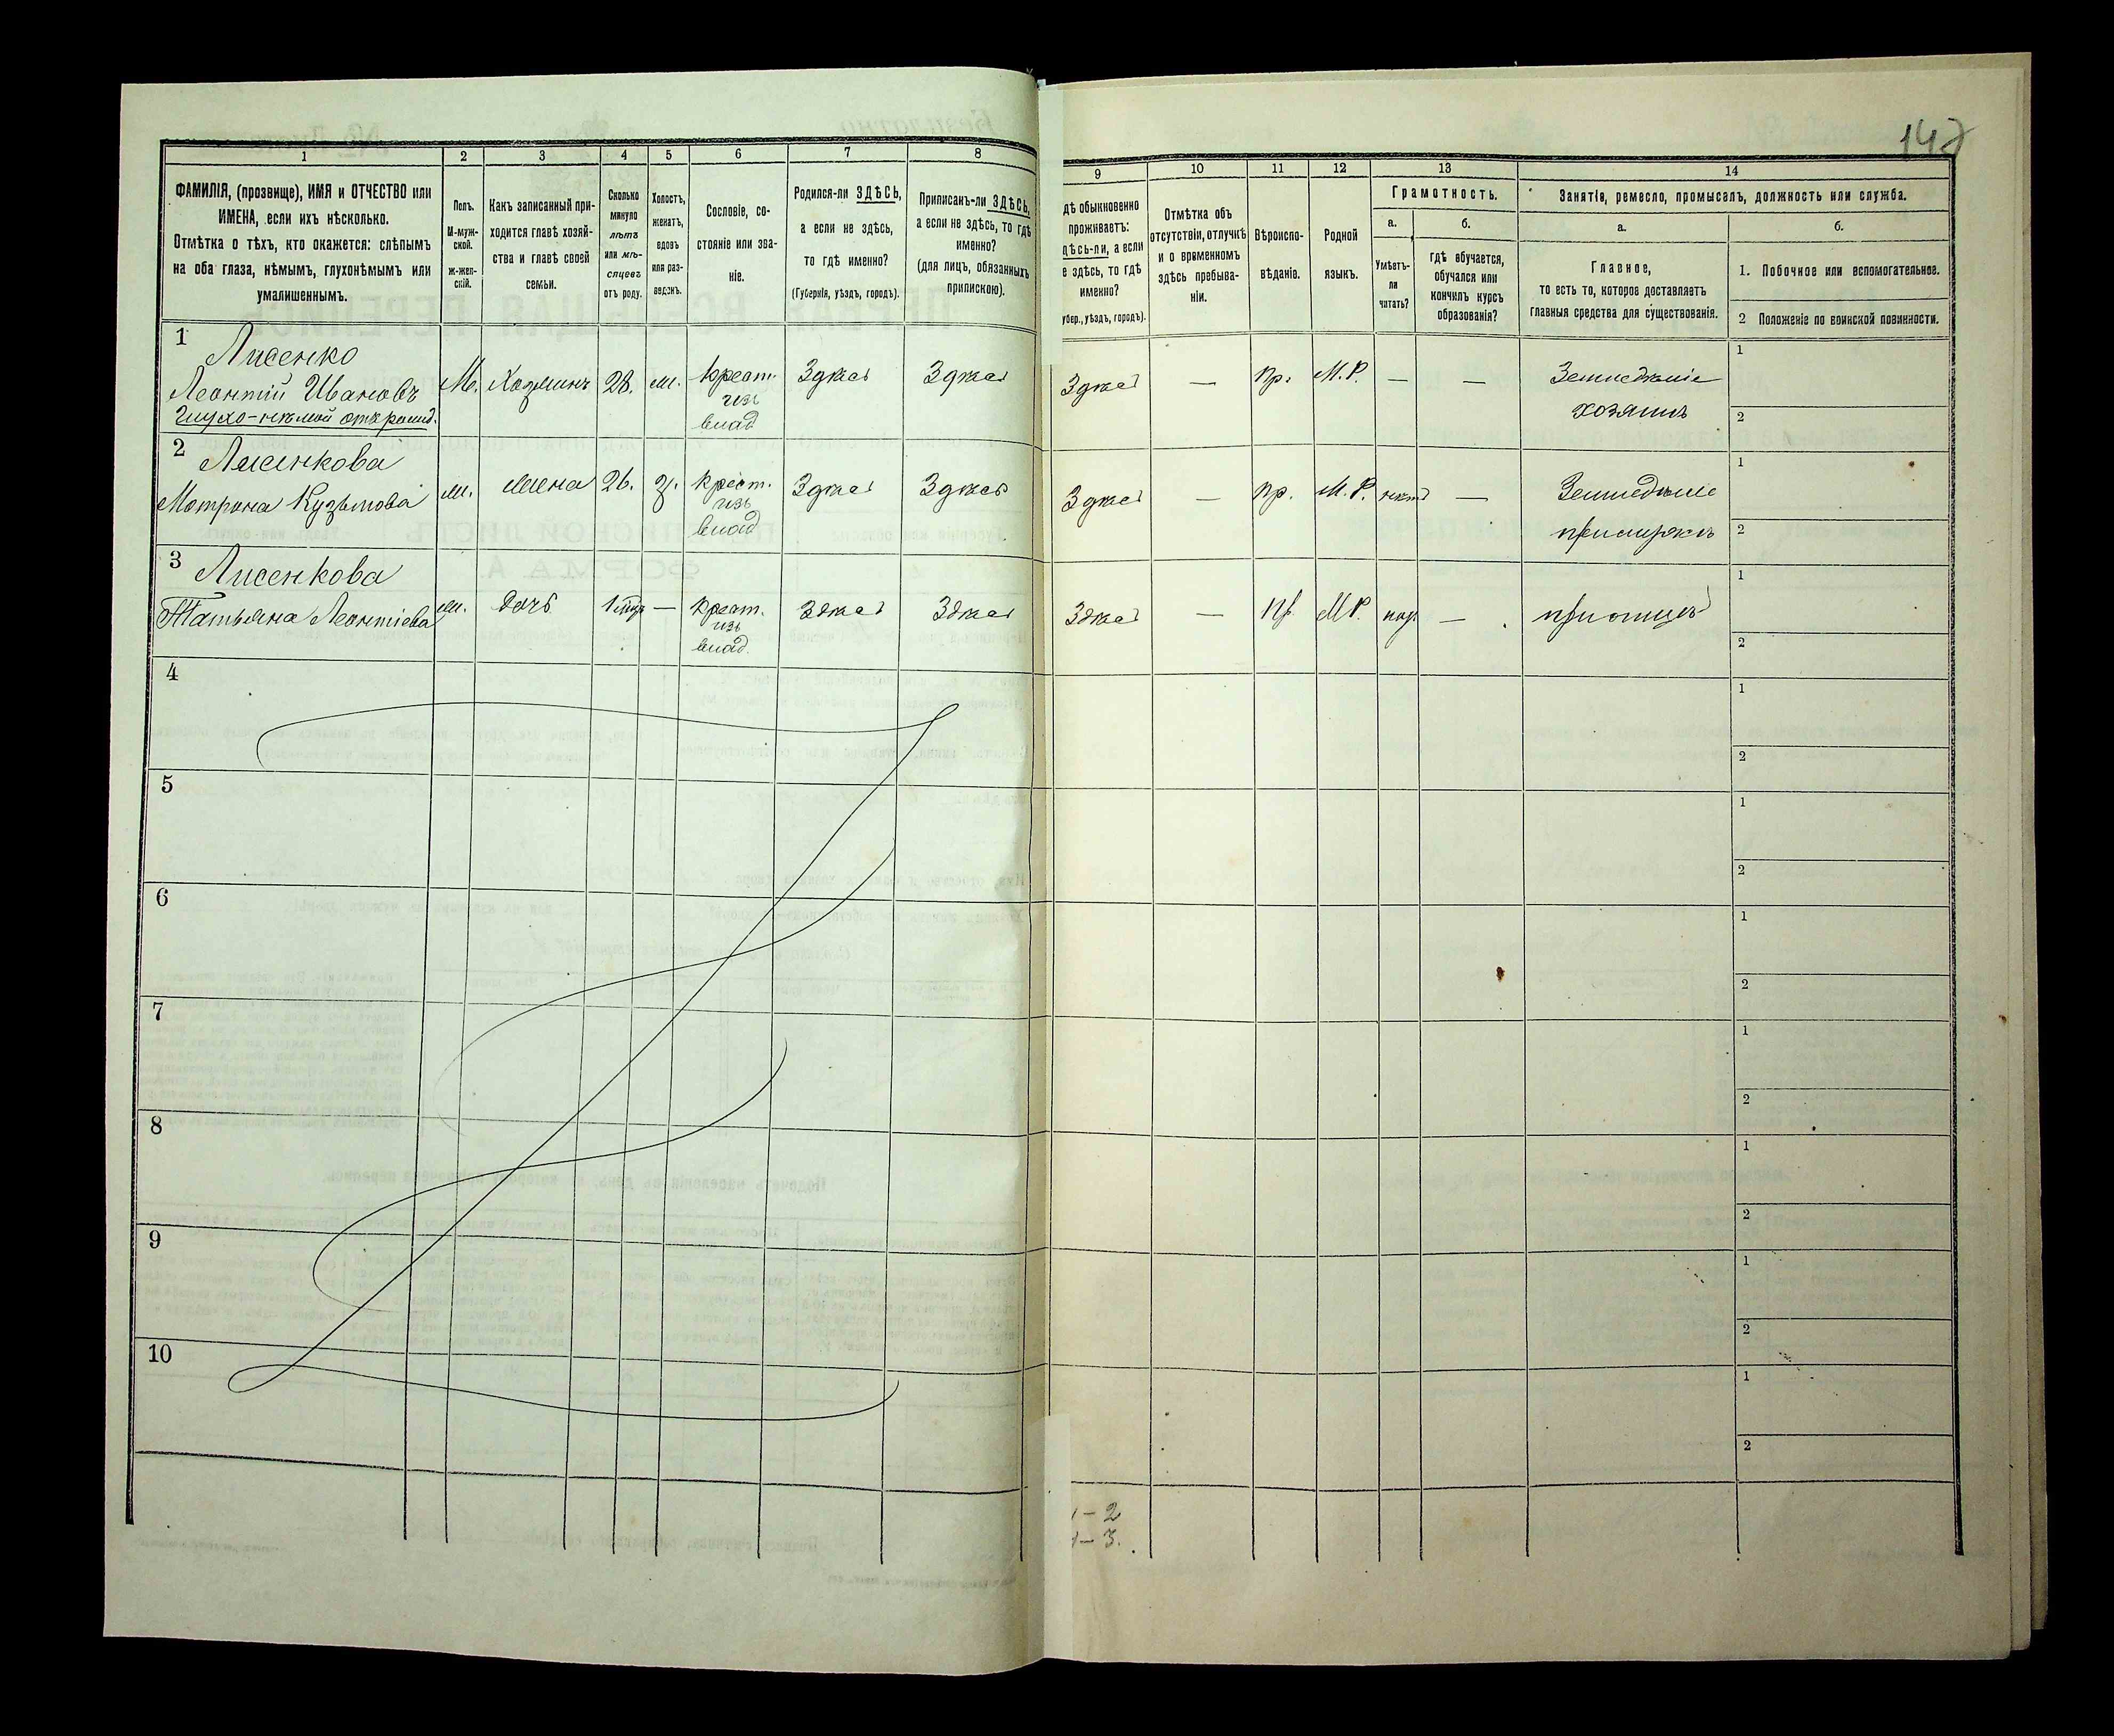 147
1 2 3 4 5 6 7 8 9 10 11 12 13 14
ФАМИЛІЯ, (прозвище), ИМЯ и ОТЧЕСТВО или
ИМЕНА, если ихъ нѣсколько.
Отмѣтка о тѣхъ, кто окажется: слѣпымъ
на оба глаза, нѣмымъ, глухонѣмымъ или
умалишеннымъ.
Полъ.
М-муж-
ской.
ж-жен-
скій.
Какъ записанный при-
ходится главѣ хозяй-
ства и главѣ своей
семьи.
Сколько
минуло
лѣтъ
или мѣ-
сяцевъ
отъ роду.
Холостъ,
женатъ,
вдовъ
или раз-
веденъ.
Сословіе, со-
стояніе или зва-
ніе.
Родился-ли ЗДѢСЬ,
а если не здѣсь,
то гдѣ именно?
(Губернія, уѣздъ, городъ).
Приписанъ-ли ЗДѢСЬ,
а если не здѣсь, то гдѣ
именно?
(для лицъ, обязанныхъ
припискою).
дѣ обыкновенно
проживаетъ:
дѣсь-ли, а если
е здѣсь, то гдѣ
именно?
убер., уѣздъ, городъ).
Отмѣтка объ
отсутствіи, отлучкѣ
и о временномъ
здѣсь пребыва-
ніи.
Вѣроиспо-
вѣданіе.
Родной
языкъ.
Грамотность.
а.
Умѣетъ-
ли
читать?
б.
гдѣ обучается,
обучался или
кончилъ курсъ
образованія?
Занятіе, ремесло, промыселъ, должность или служба.
а.
Главное,
то есть то, которое доставляетъ
главныя средства для существованія.
б.
1. Побочное или вспомогательное.
2 Положеніе по воинской повинности.
1
Лисенко
Леонтій Ивановъ
глухо-нѣмой отъ рожд.
М. Хозяинъ 28. ж. Крест.
изъ
влад
Здѣсь Здѣсь Здѣсь — пр. М.Р. — — Земледѣліе
хозяинъ
1
2
2
Лисенкова
Матрона Кузьмова
ж. Жена 26. з. крест.
изъ
влад
Здѣсь Здѣсь Здѣсь — пр. М.Р. нѣтъ —
Земледѣліе
1
2
3
Лисенкова
Татьяна Леонтіева
ж. дочь — Крест.
изъ
влад.
Здѣсь Здѣсь Здѣсь — пр. М.Р. —
при отцѣ
1
2
4
1
2
5
1
2
6
1
2
7
1
2
8
1
2
9
1
2
10
1
2
– 2
– 3.